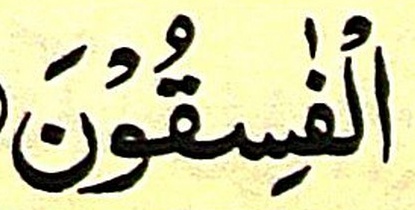 الْفٰسِقُوْنَ